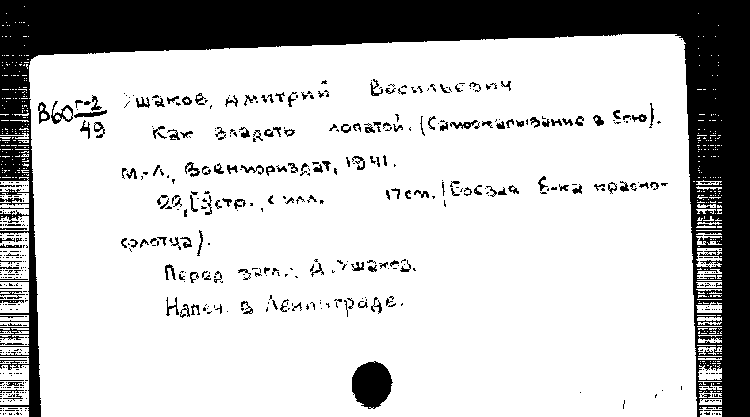 В60 г-2/49
Ушаков, Дмитрий Васильевич
Как владеть лопатой. (Самоокапывание в бою).
М.-Л., Военмориздат, 1941.
[3] стр., с илл. 17 см. (Боевая б-ка красно-
флотца).
Перед загл.: Д. Ушаков.
Напеч. в Ленинграде.